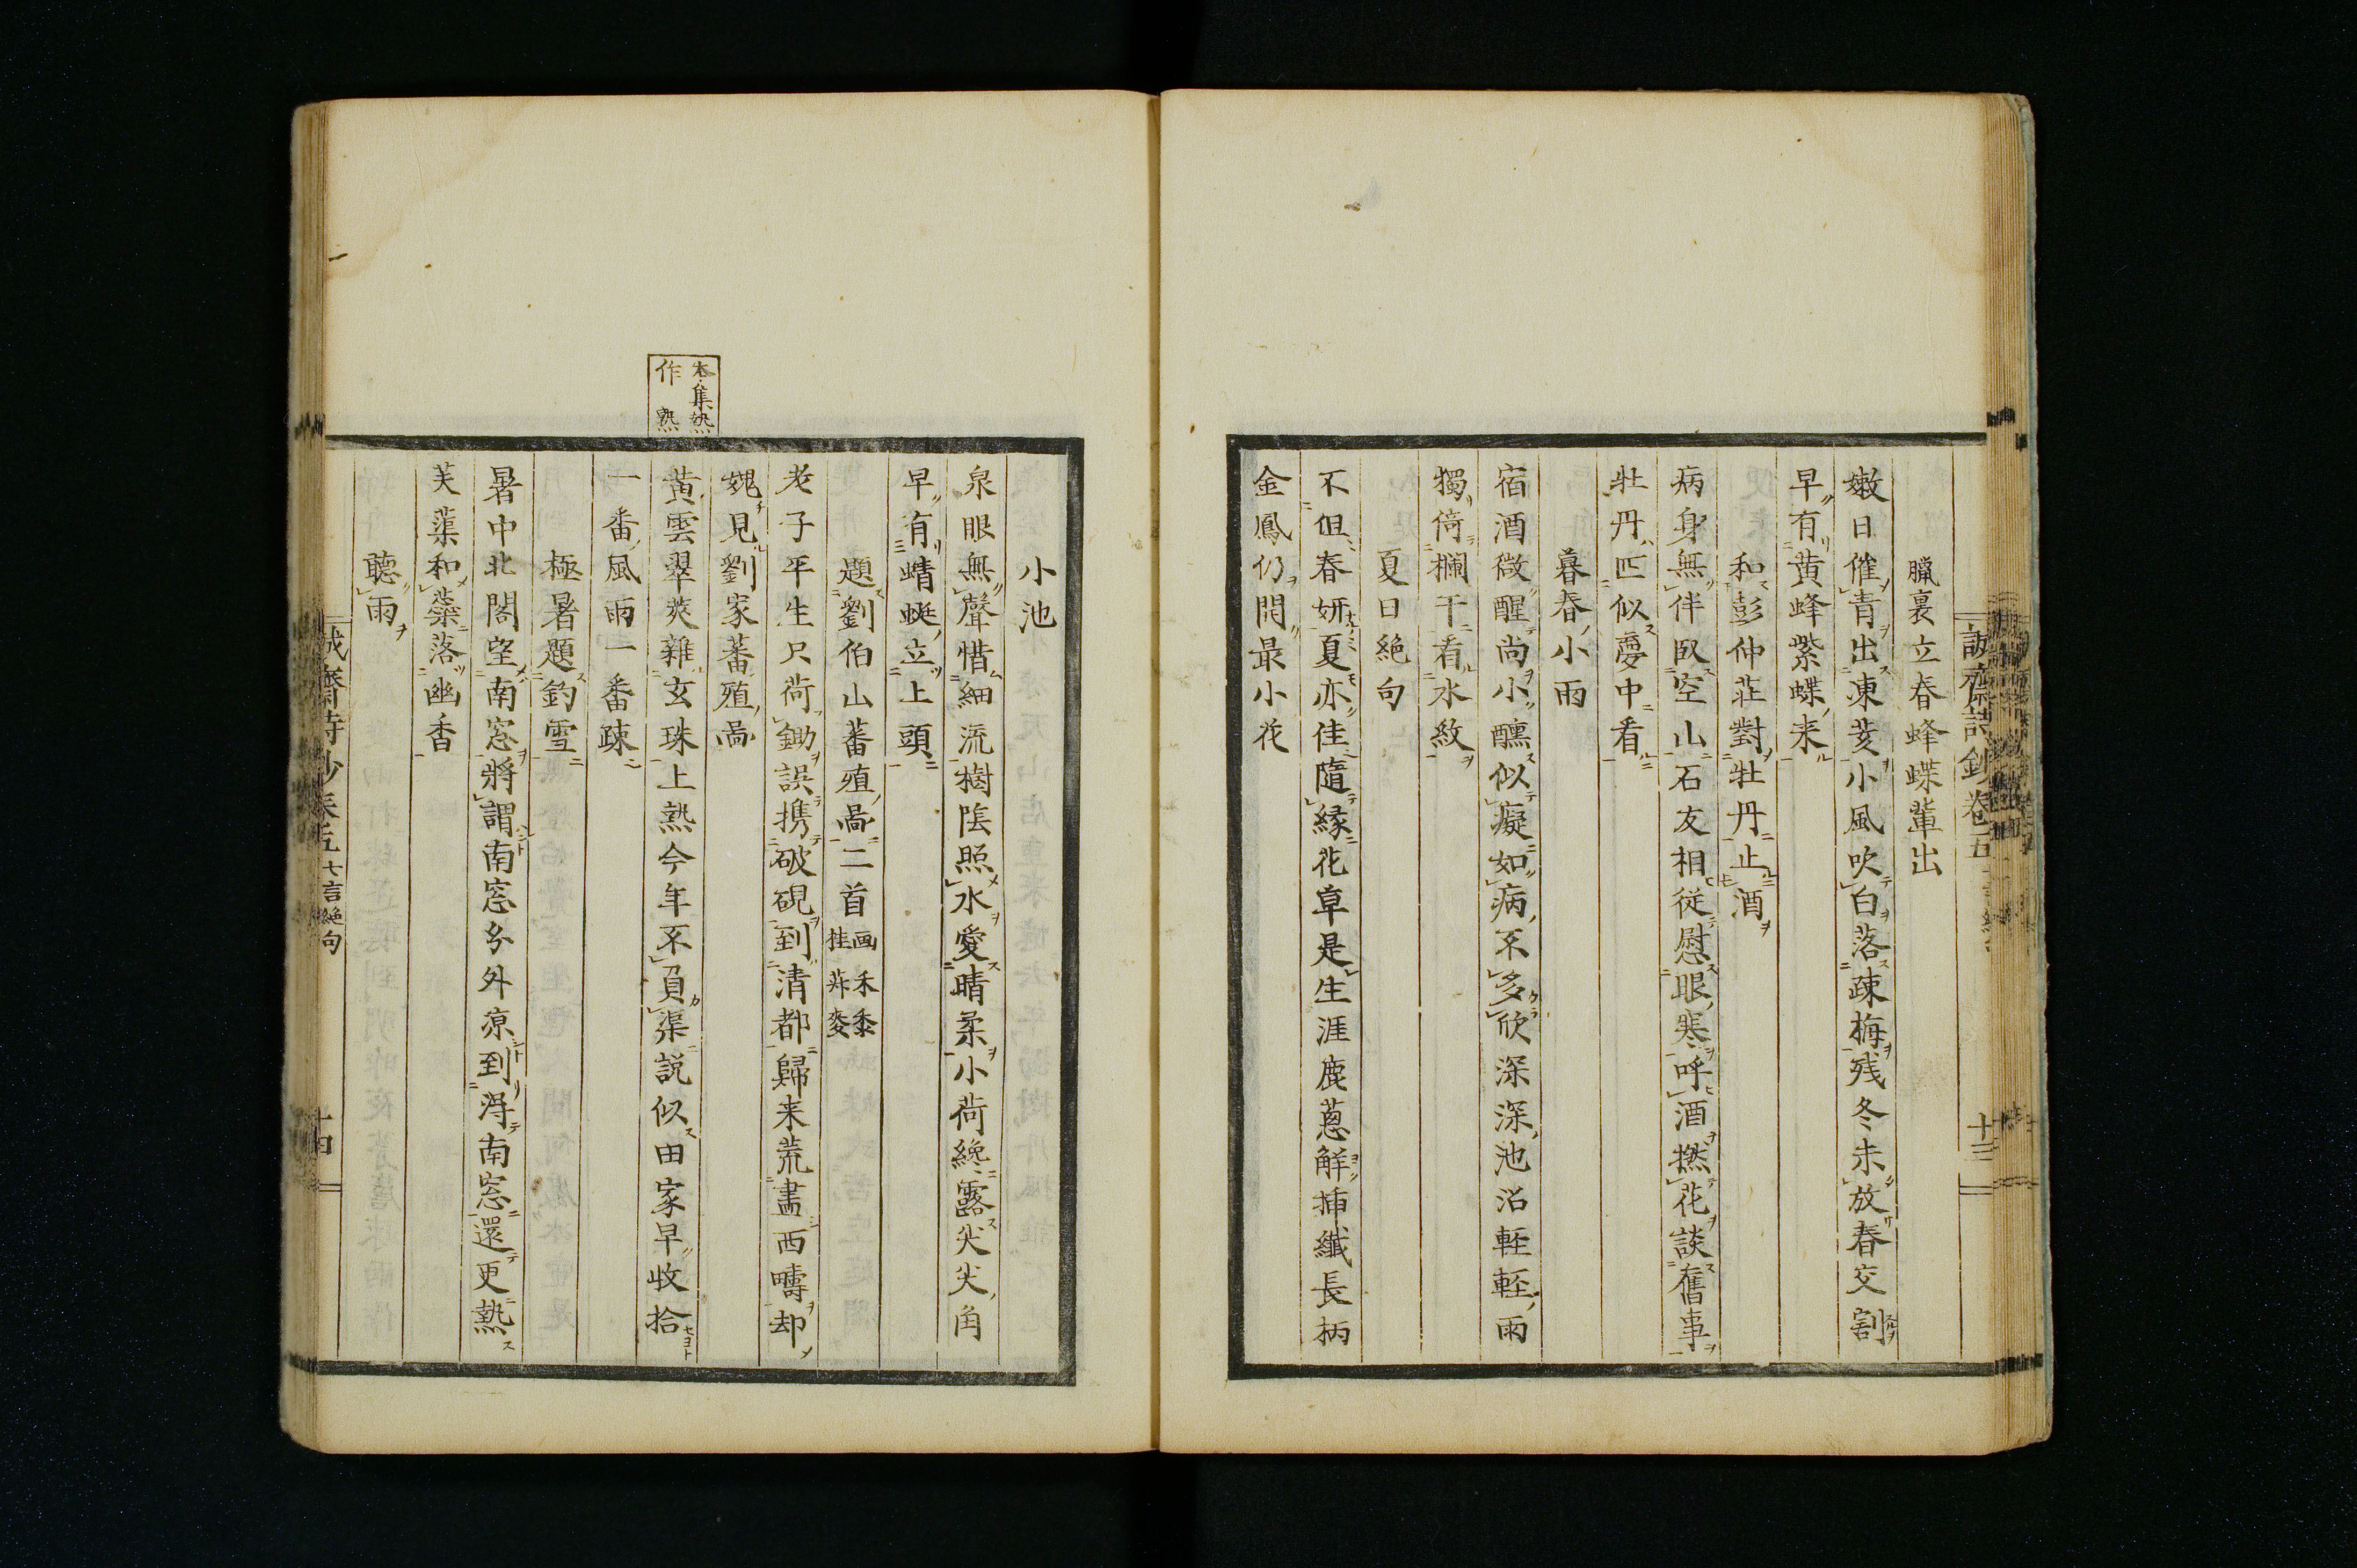 誠齋詩鈔卷五
十三
臘裏立春蜂蝶輩出
嫩日催青出凍荄小風吹白落疎梅残冬未放春交割
早有黄蜂紫蝶来
和彭仲莊對牡丹止酒
病身無伴臥空山石友相従慰眼寒呼酒撚花談舊事
牡丹匹似夢中看
暮春小雨
宿酒微醒尚小醺似癡如病不多欣深深池沼軽軽雨
獨倚欄干看水紋
夏日絶句
不但春妍夏亦佳隨縁花草是生涯鹿蔥解插纖長柄
金鳳仍開最小花
小池
泉眼無聲惜細流樹陰照水愛晴柔小荷纔露尖尖角
早有蜻蜓立上頭
題劉伯山蕃殖啚二首 画禾黍荏菽麥
老子平生只荷鋤誤携破硯到清都歸来荒盡西疇却
媿見劉家蕃殖啚
本集𤍠作熟
黄雲翠莢雜玄珠上熟今年不負渠説似田家早收拾
一番風雨一番疎
極暑題釣雪
暑中北閣望南窓將謂南窓分外凉到得南窓還更熱
芙蕖和蘂落幽香
聽雨
誠齋詩鈔卷五 七言絶句
十四